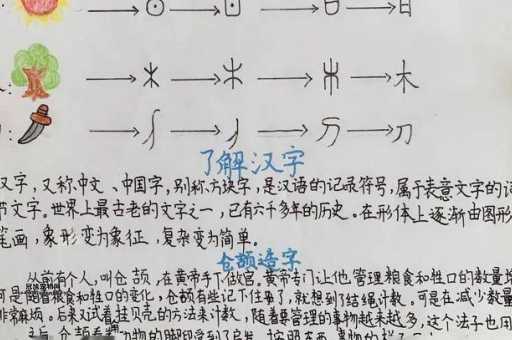 日
木
刀
了解汉字
汉字,又称中文、中国字,别称方块字,是汉语的记录符号,属于表意文字的词
节文字。世界上最古老的文字之一,已有六千多年的历史。在形体上逐渐由图形
笔画,象形变为象征,复杂变为简单。
仓颉造字
从前有个人,叫仓颉,在黄帝手下做官。黄帝专门让他管理粮食和牲口的数量增
可是随着粮食和牲口的变化,仓颉有些记不住事了,就想到了结绳计数。可是在减少数量
非常麻烦。后来又试着挂贝壳的方法来计数,随着要管理的事物越来越多,这个法子也用
仓颉看